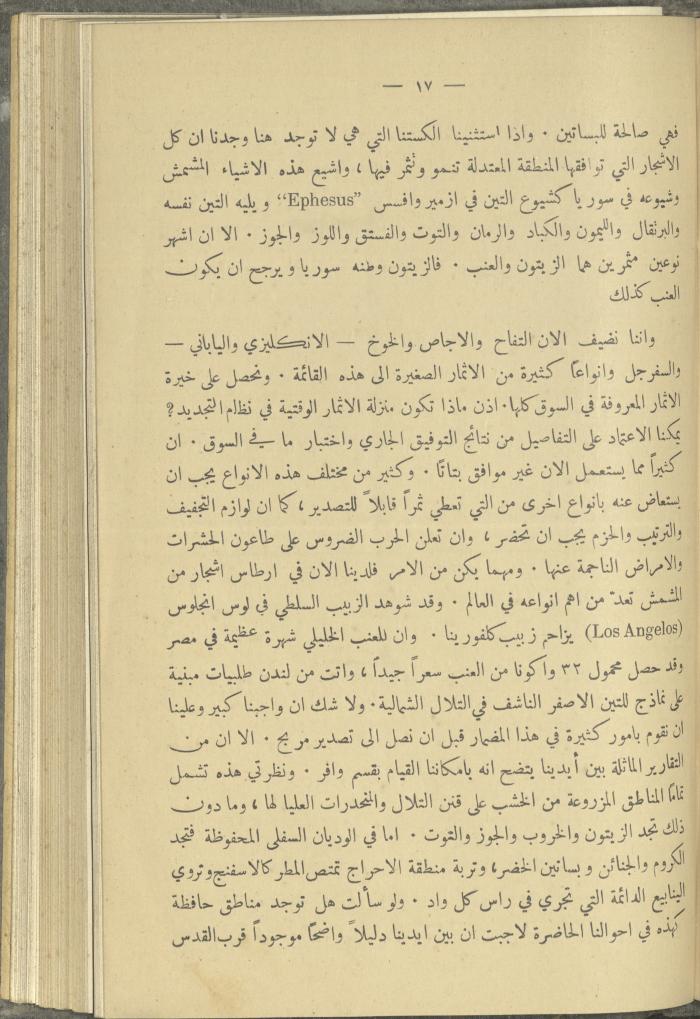 — ١٧ —
فهي صالحة للبساتين ٠ واذا استثنينا الكستنا التي هي لا توجد هنا وجدنا ان كل
الاشجار التي توافقها المنطقة المعتدلة تنمو وتثمر فيها ، واشيع هذه الاشياء المشمش
وشيوعه في سوريا كشيوع التين في ازمير وافسس “Ephesus” ويليه التين نفسه
والبرتقال والليمون والكباد والرمان والتوت والفستق واللوز والجوز ٠ الا ان اشهر
نوعين مثمرين هما الزيتون والعنب ٠ فالزيتون وطنه سوريا ويرجح ان يكون
العنب كذلك
واننا نضيف الان التفاح والاجاص والخوخ — الانكليزي والياباني —
والسفرجل وانواعاً كثيرة من الاثمار الصغيرة الى هذه القائمة ٠ ونحصل على خيرة
الاثمار المعروفة في السوق كلها٠ اذن ماذا تكون منزلة الاثمار الوقتية في نظام التجديد؟
يمكنا الاعتماد على التفاصيل من نتائج التوفيق الجاري واختبار ما في السوق ٠ ان
كثيراً مما يستعمل الان غير موافق بتاتاً ٠ وكثير من مختلف هذه الانواع يجب ان
يستعاض عنه بانواع اخرى من التي تعطي ثمراً قابلاً للتصدير ، كما ان لوازم التجفيف
والترتيب والحزم يجب ان تحضر ، وان تعلن الحرب الضروس على طاعون الحشرات
والامراض الناجمة عنها ٠ ومهما يكن من الامر فلدينا الان في ارطاس اشجار من
المشمش تعدّ من اهم انواعه في العالم ٠ وقد شوهد الزبيب السلطي في لوس انجلوس
(Los Angelos) يزاحم زبيب كلفورينا ٠ وان للعنب الخليلي شهرة عظيمة في مصر
وقد حصل محمول ٣٢ واكونا من العنب سعراً جيداً ، واتت من لندن طلبيات مبنية
على نماذج للتين الاصفر الناشف في التلال الشمالية٠ ولا شك ان واجبنا كبير وعلينا
ان نقوم بامور كثيرة في هذا المضمار قبل ان نصل الى تصدير مربح ٠ الا ان من
التقارير الماثلة بين أيدينا يتضح انه بامكاننا القيام بقسم وافر ٠ ونظرتي هذه تشمل
تماماً المناطق المزروعة من الخشب على قنن التلال والمنحدرات العليا لها ، وما دون
ذلك تجد الزيتون والخروب والجوز والتوت ٠ اما في الوديان السفلى المحفوظة فتجد
الكروم والجنائن وبساتين الخضر، وتربة منطقة الاحراج تمتص المطر كالاسفنج وتروي
الينابيع الدائمة التي تجري في راس كل واد ٠ ولو سألت هل توجد مناطق حافظة
كهذه في احوالنا الحاضرة لاجبت ان بين ايدينا دليلاً واضحاً موجوداً قرب القدس